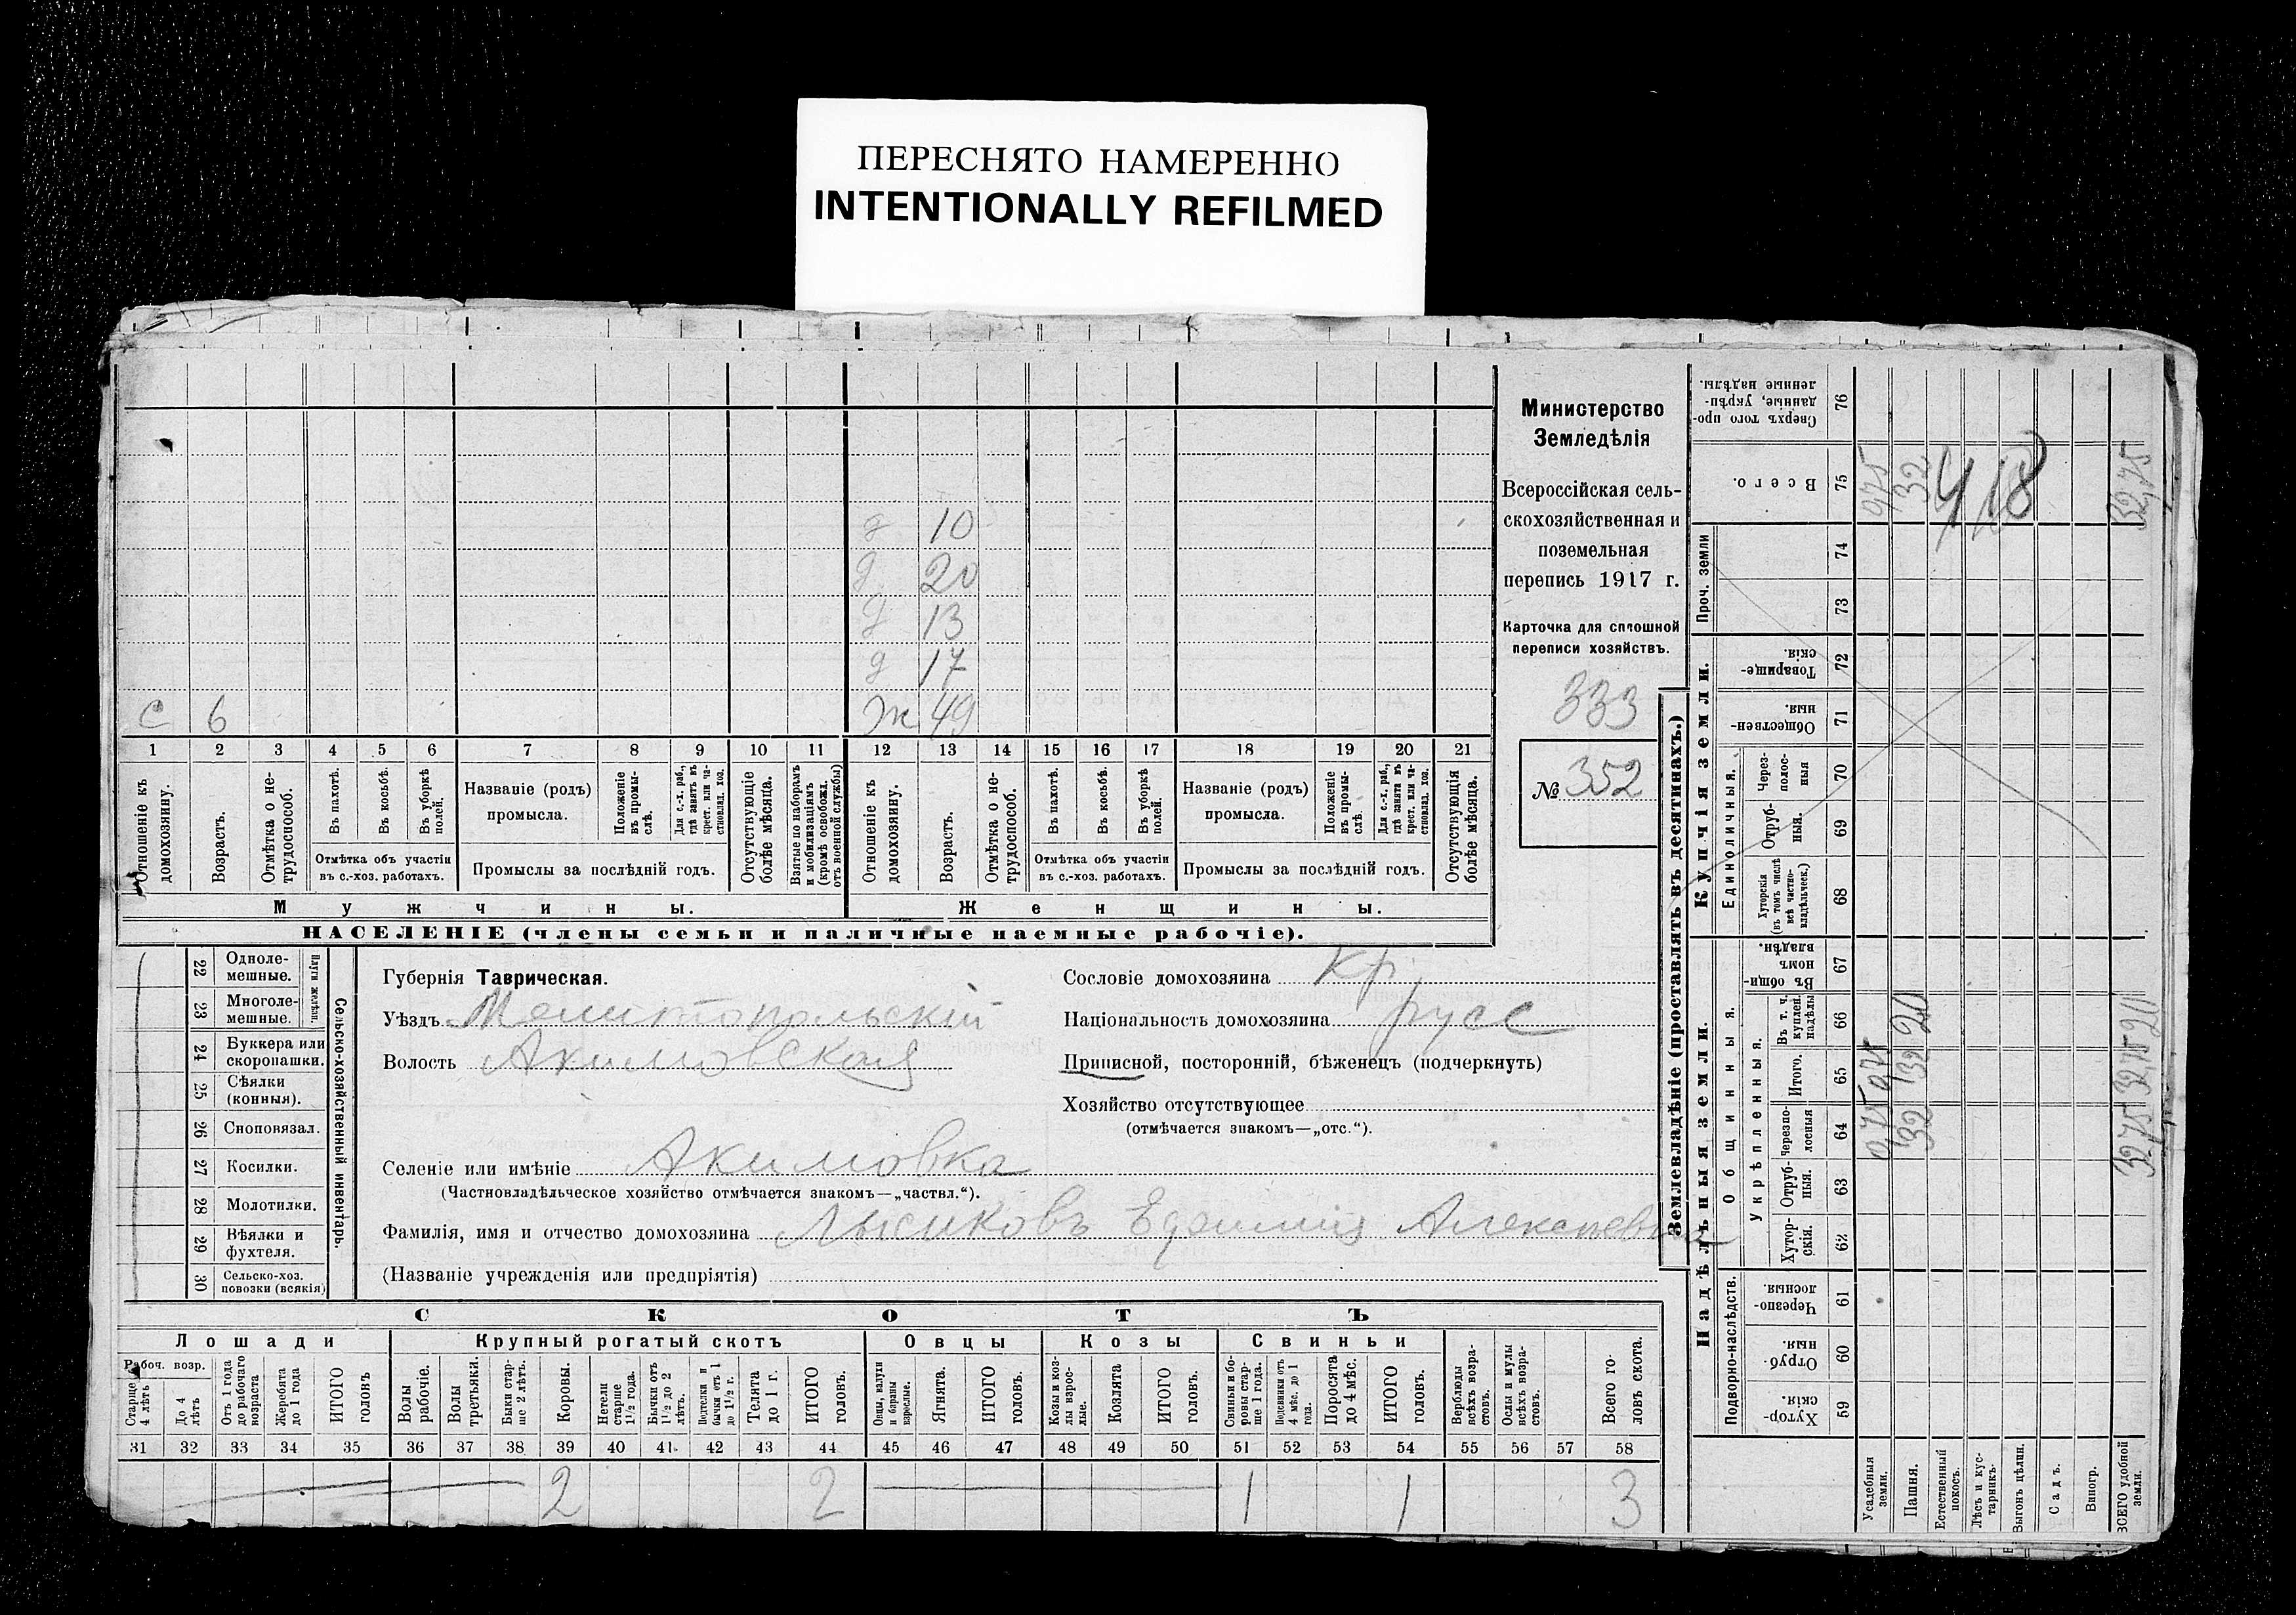 ПЕРЕСНЯТО НАМЕРЕННО
INTENTIONALLY REFILMED
Министерство
Земледѣлія
Всероссійская сель-
скохозяйственная и
поземельная
перепись 1917 г.
Карточка для сплошной
переписи хозяйствъ.
333
№ 352
д 10
д 20
д 13
д 17
с 6 ж 49
1 2 3 4 5 6 7 8 9 10 11 12 13 14 15 16 17 18 19 20 21
Отношеніе къ домохозяину.
Возрастъ.
Отмѣтка о не-трудоспособ.
Въ пахотѣ.
Въ косьбѣ.
Въ уборкѣ полей.
Отмѣтка объ участіи
въ с.-хоз. работахъ.
Названіе (родъ)
промысла.
Положеніе въ промы-слѣ.
Для с.-х. раб., гдѣ занятъ въ крест. или ча-стновлад. хоз.
Промыслы за послѣдній годъ.
Отсутствующіе болѣе мѣсяца.
Взятые по наборамъ и мобилизаціямъ (кромѣ освобожд. отъ военной службы)
Отношеніе къ домохозяину.
Возрастъ.
Отмѣтка о не-трудоспособ.
Въ пахотѣ.
Въ косьбѣ.
Въ уборкѣ полей.
Отмѣтка объ участіи
въ с.-хоз. работахъ.
Названіе (родъ)
промысла.
Положеніе въ промы-слѣ.
Для с.-х. раб., гдѣ занята въ крест. или ча-стновлад. хоз.
Промыслы за послѣдній годъ.
Отсутствующія болѣе мѣсяца.
Мужчины. Женщины.
НАСЕЛЕНІЕ (члены семьи и наличные наемные рабочіе).
22 Одноле-мешные.
23 Многоле-мешные.
Плуги желѣзн.
24 Буккера или скоропашки.
25 Сѣялки (конныя).
26 Сноповязал.
27 Косилки.
28 Молотилки.
29 Вѣялки и фухтеля.
30 Сельско-хоз. повозки (всякія)
Сельско-хозяйственный инвентарь.
Губернія Таврическая.
Уѣздъ Мелитопольскій
Волость Акимовская
Селеніе или имѣніе Акимовка
(Частновладѣльческое хозяйство отмѣчается знакомъ—„частвл.“).
Фамилія, имя и отчество домохозяина
(Названіе учрежденія или предпріятія)
Сословіе домохозяина кр.
Національность домохозяина русс
Приписной, посторонній, бѣженецъ (подчеркнуть)
Хозяйство отсутствующее
(отмѣчается знакомъ—„отс.“).
СКОТЪ
Лошади Крупный рогатый скотъ Овцы Козы Свиньи
Рабоч. возр.
Старше 4 лѣтъ
До 4 лѣтъ
Отъ 1 года до рабочаго возраста
Жеребята до 1 года
ИТОГО головъ
Волы рабочіе.
Волы третьяки.
Быки стар-ше 2 лѣтъ.
Коровы.
Нетели старше 1½ года.
Бычки отъ 1½ до 2 лѣтъ.
Подтелки и бычки отъ 1 до 1½ г.
Телята до 1 г.
ИТОГО головъ.
Овцы, валухи и бараны взрослые.
Ягнята.
ИТОГО головъ.
Козы и коз-лы взрос-лые.
Козлята
ИТОГО головъ.
Свиньи и бо-ровы стар-ше 1 года.
Подсвинки отъ 4 мѣс. до 1 года.
Поросята до 4 мѣс.
ИТОГО головъ.
Верблюды всѣхъ возра-стовъ.
Ослы и мулы всѣхъ возра-стовъ.
Всего го-ловъ скота.
31 32 33 34 35 36 37 38 39 40 41 42 43 44 45 46 47 48 49 50 51 52 53 54 55 56 57 58
2 2 1 1 3
Землевладѣніе (проставлять въ десятинахъ.)
Надѣльныя земли. Купчія земли.
Подворно-наслѣдств.
Общинныя.
Укрѣпленныя.
Единоличныя.
Проч. земли
59 Хутор-скія.
60 Отруб-ныя.
61 Черезпо-лосныя
62 Хутор-скія.
63 Отруб-ныя.
64 Черезпо-лосныя
65 Итого.
66 Въ т. ч. куплен. надѣлы
67 Въ общи-номъ владѣн.
68 Хуторскія (въ томъ числѣ всѣ частно-владѣльческ.)
69 Отруб-ныя.
70 Через-полос-ныя
71 Обществен-ныя.
72 Товарище-скія.
73
74
75 Всего.
76 Сверхъ того про-данные, укрѣп-ленные надѣлы.
Усадебныя земли.
Пашня.
Естественный покосъ.
Лѣсъ и кус-тарникъ.
Выгонъ цѣлин.
Садъ.
Виногр.
ВСЕГО удобной земли.
0,75 0,75
32 32 20 32
3275 3275 20 32,75
418